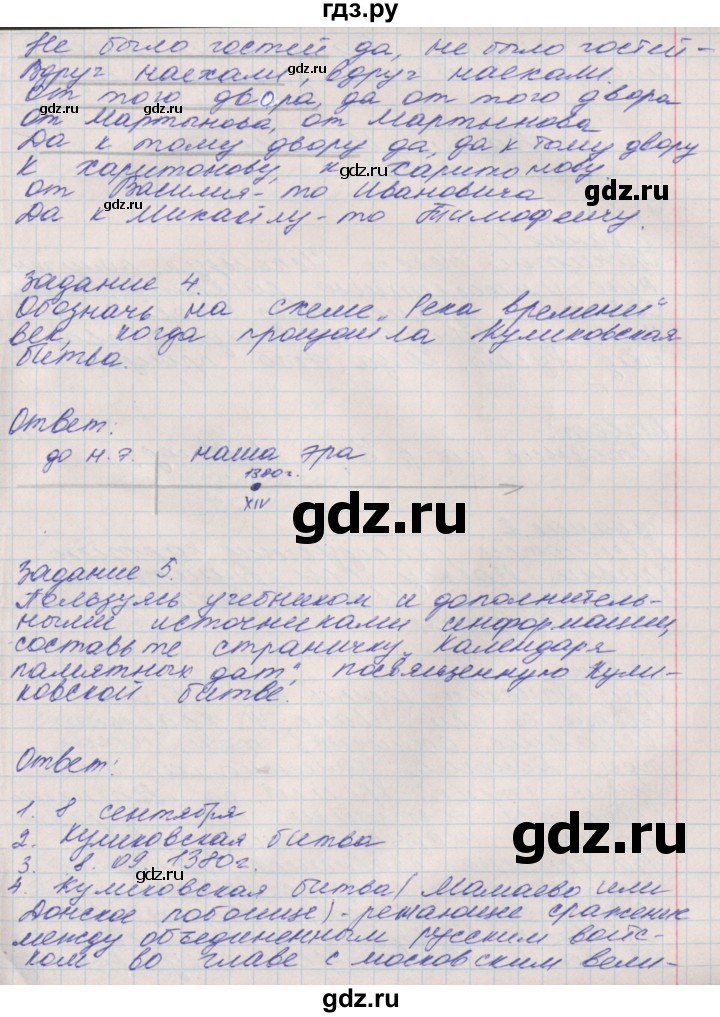 гдз.ру
Не было гостей да, не было гостей -
Вдруг наехали, вдруг наехали.
От того двора, да от того двора
от Мартынова, от Мартынова
Да к тому двору да, да к тому двору
к Харитонову, к Харитонову.
от Василия-то Ивановича
Да к Михайлу-то Тимофеичу.
Задание 4.
Обозначь на схеме „Река времени"
век, когда произошла Куликовская
битва.
Ответ:
до н.э. наша эра
1380г.
XIV
Задание 5.
Пользуясь учебником и дополнитель-
ными источниками информации,
составьте страничку „Календаря
памятных дат", посвященную Кули-
ковской битве.
Ответ:
1. 8 сентября
2. Куликовская битва
3. 8.09.1380г.
4. Куликовская битва (Мамаево или
Донское побоище) - решающие сражение
между объединенным русским войс-
ком во главе с московским вели-
gdz.ru
gdz.ru
gdz.ru
gdz.ru
gdz.ru
gdz.ru
gdz.ru
gdz.ru
gdz.ru
gdz.ru